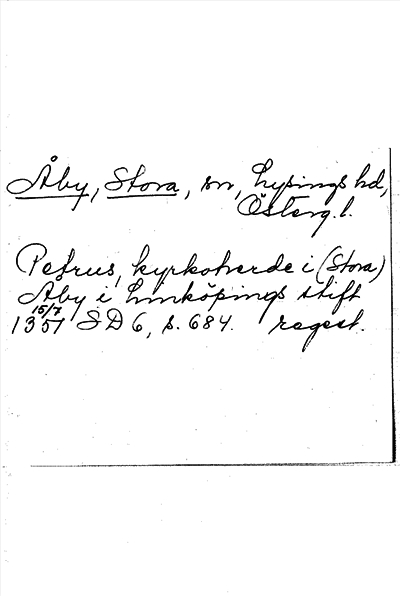 Åby, Stora, sn, Lysings hd,
Österg. l.
Petrus, kyrkoherde i (Stora)
Åby i Linköpings stift
15/7
1351 SD 6, s. 684. regest.